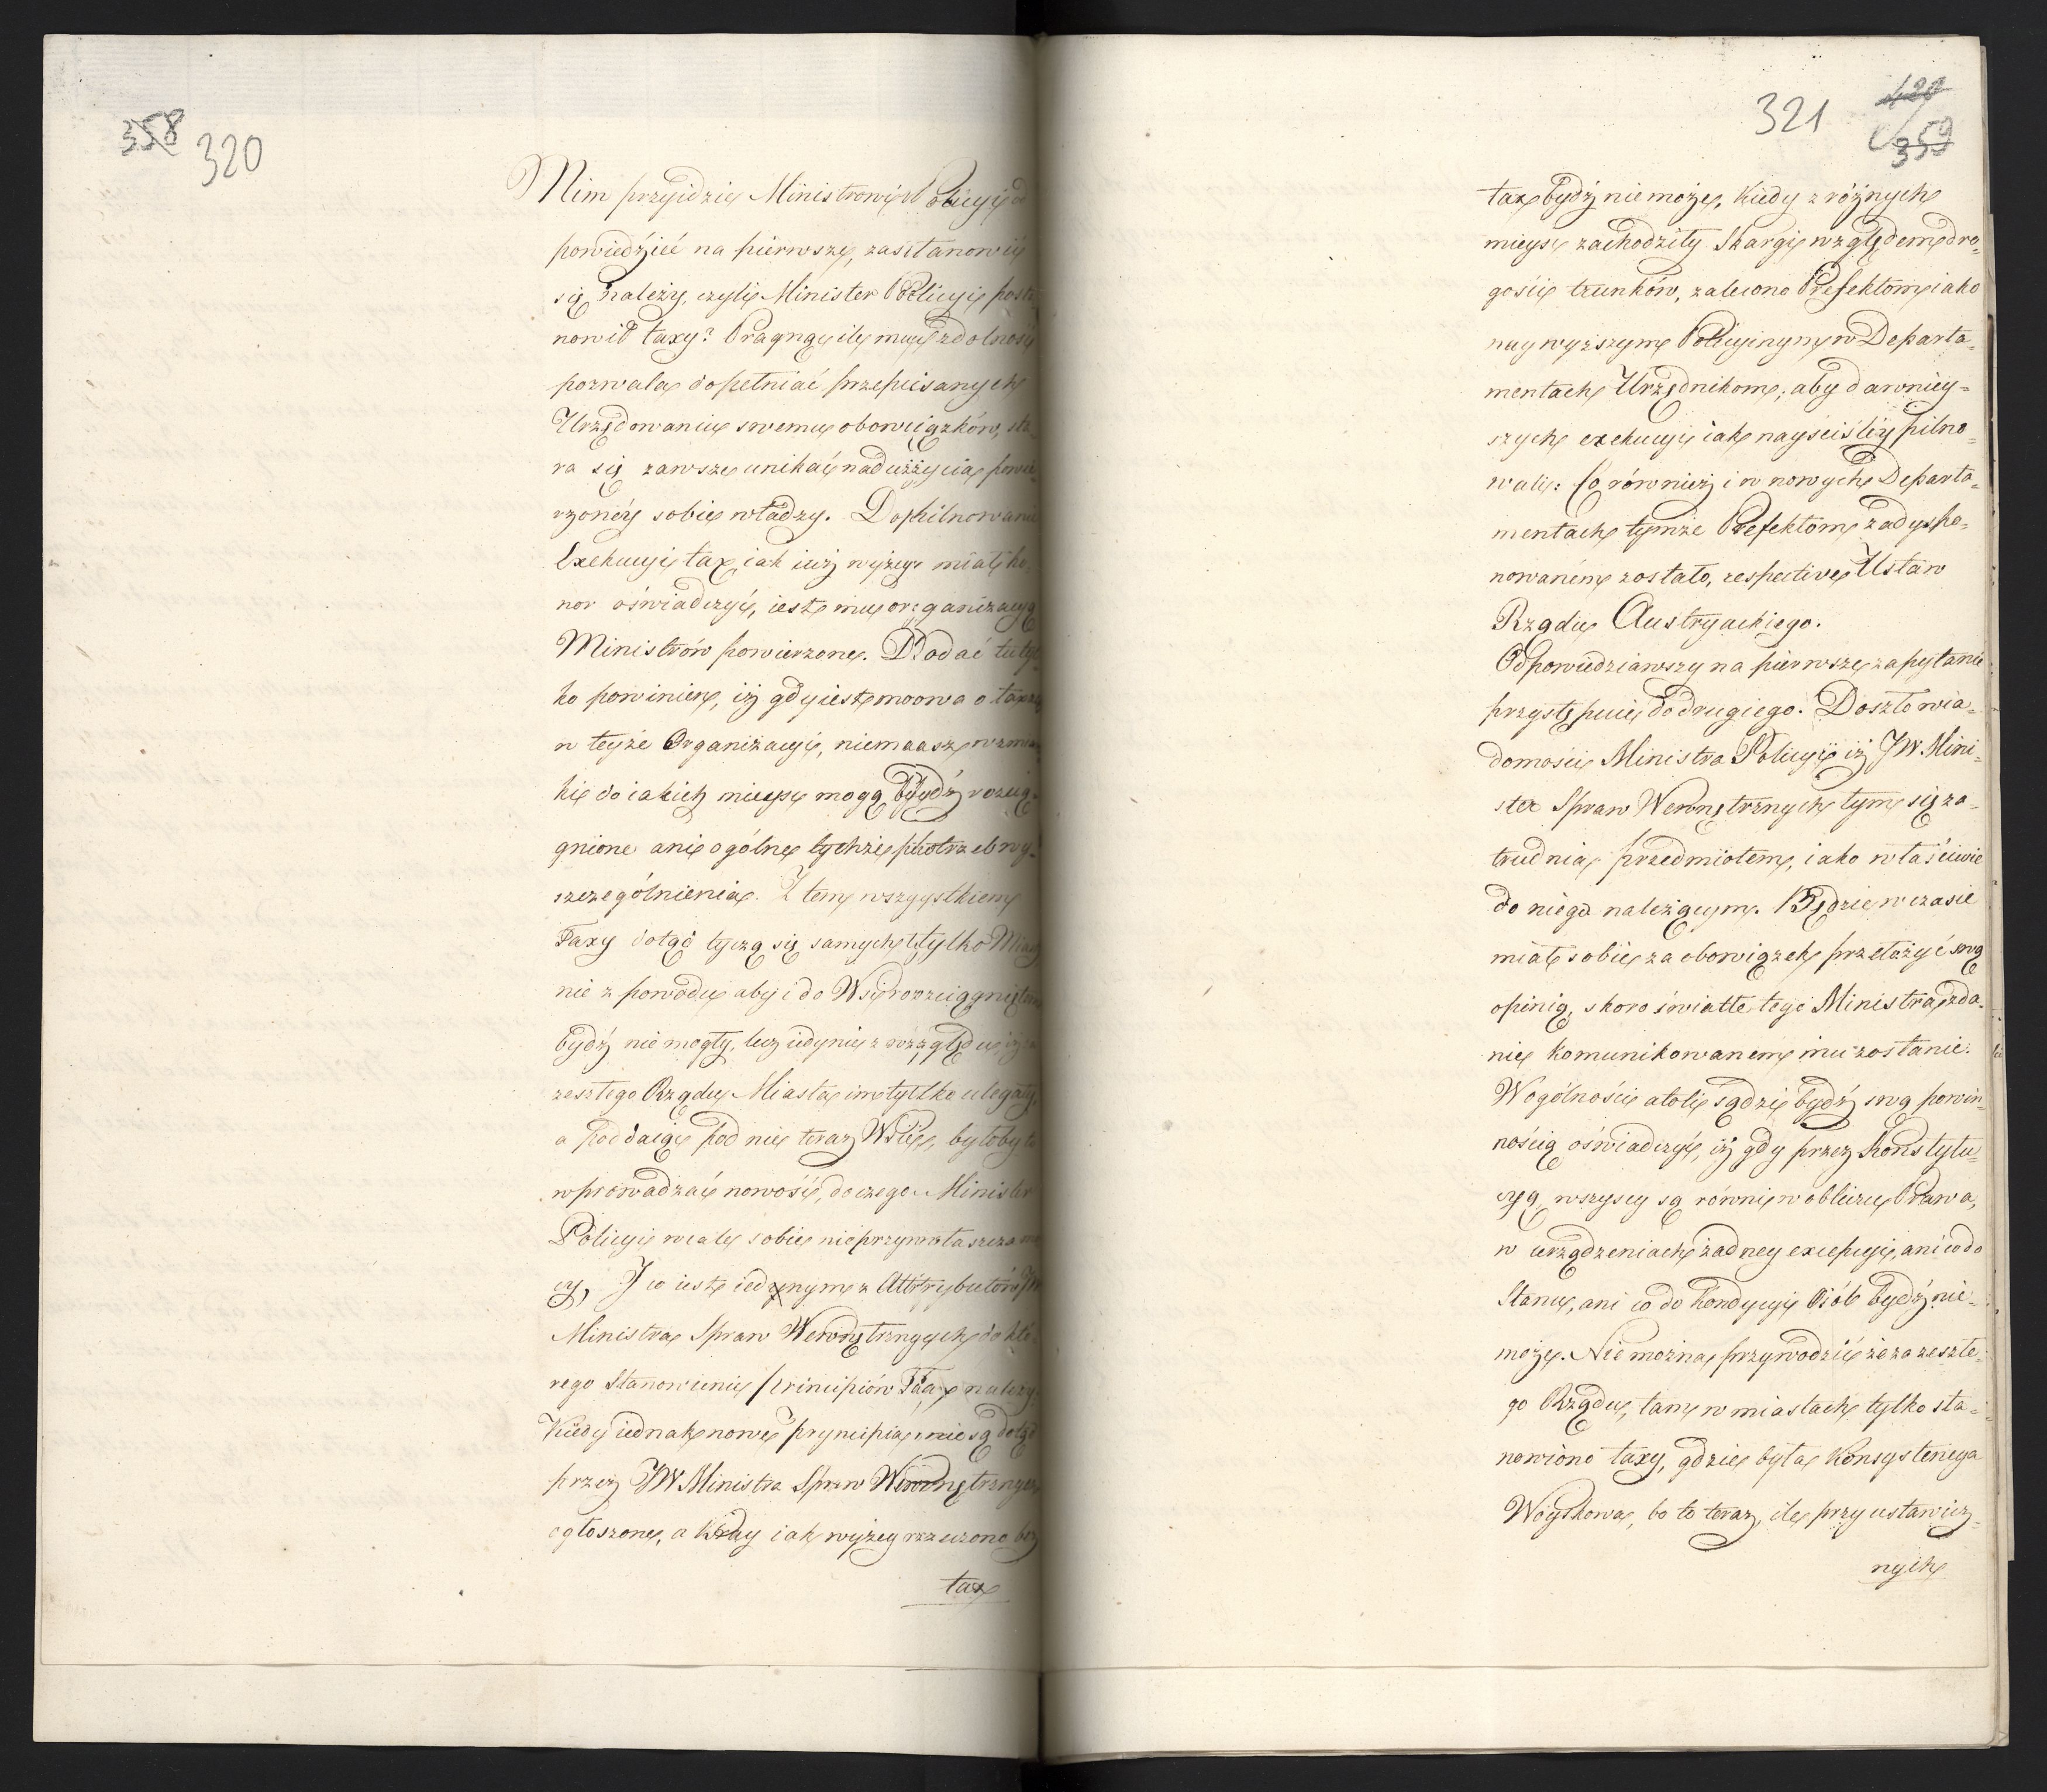 358 320
Nim przyidzie Ministrowi Policyi od
powiedzieć na pierwsze, zastanowić
się należy, czyli Minister Policyi posta
nowił taxy? Pragnąc ile mu zdolność
pozwala dopełniać przepisanych
Urzędowaniu swemu obowiązków, sta
ra się zawsze unikać nadużycia powie
rzonéy sobie władzy. Dopilnowanie
Exekucyi tax, iak iuż wyżey miał ho,
nor oświadczyć, iest mu organizacyą
Ministrów powierzone. Dodać tu tyl
ko powinien, iż gdy iest moowa o taxie
w teyże Organizacyi, niemasz wzmian
ki do iakich mieysc mogą bydź rozcią,
gnione ani ogólne tychże potrzeb wy,
szczególnienia. Z tem wszystkiem
Taxy dotąd tyczą się samych tylko Miast
nie z powodu aby i do Wsi rozciągnięte
bydź nie mogły, lecz iedynie z względu iż za
zeszłego Rządu Miasta im tylko ulegały,
a poddaiąc pod nie teraz Wsie, byłoby to
wprowadzać nowość, do czego Minister
Policyi wcale sobie nie przywłaszcza mo
cy, I co iest iednym z Attrybutów JW
Ministra Spraw Wewnętrznych do któ
rego Stanowienie Principiów Tax należy.
Kiedy iednak nowe pryncipia nie są dotąd
przez JW Ministra Spraw Wewnętrznych
ogłoszone, a kiedy iak wyżey rzeczono bez
tax
321 429
359
tax bydź nie może, kiedy z różnych
mieysc zachodziły Skargi względem dro,
gości trunków, zalecono Prefektom iako
naywyższym Policyinym w Departa,
mentach Urzędnikom, aby dawniey=
szych exekucyi iak nayściśley pilno=
wali: Co również i w nowych Departa,
mentach tymże Prefektom zadyspo=
nowaném zostało, respective Ustaw
Rządu Austryackiego.
Odpowiedziawszy na pierwsze zapytanie
przystępuię do drugiego. Doszło wia=
domości Ministra Policyi iż JW. Mini=
ster Spraw Wewnętrznych tym się za=
trudnia przedmiotem, iako właściwie
do niego należącym. Będzie w czasie
miał sobie za obowiązek przełożyć swą
opinią, skoro światłe tego Ministra zda,
nie komunikowanem mu zostanie.
W ogólności atoli sądzi bydź swą powin=
nością oświadczyć, iż gdy przez Konstytu=
cyą, wszyscy są równi w obliczu Prawa,
w urządzeniach żadney excepcyi, ani co do
Stanu, ani co do kondycyi Osób bydź nie=
może. Nie można przywodzić że za zeszłe=
go Rządu, tam w miastach tylko sta=
nowiono taxy, gdzie była Konsystencya
Woyskowa, bo to teraz, ile przy ustawicz=
nych